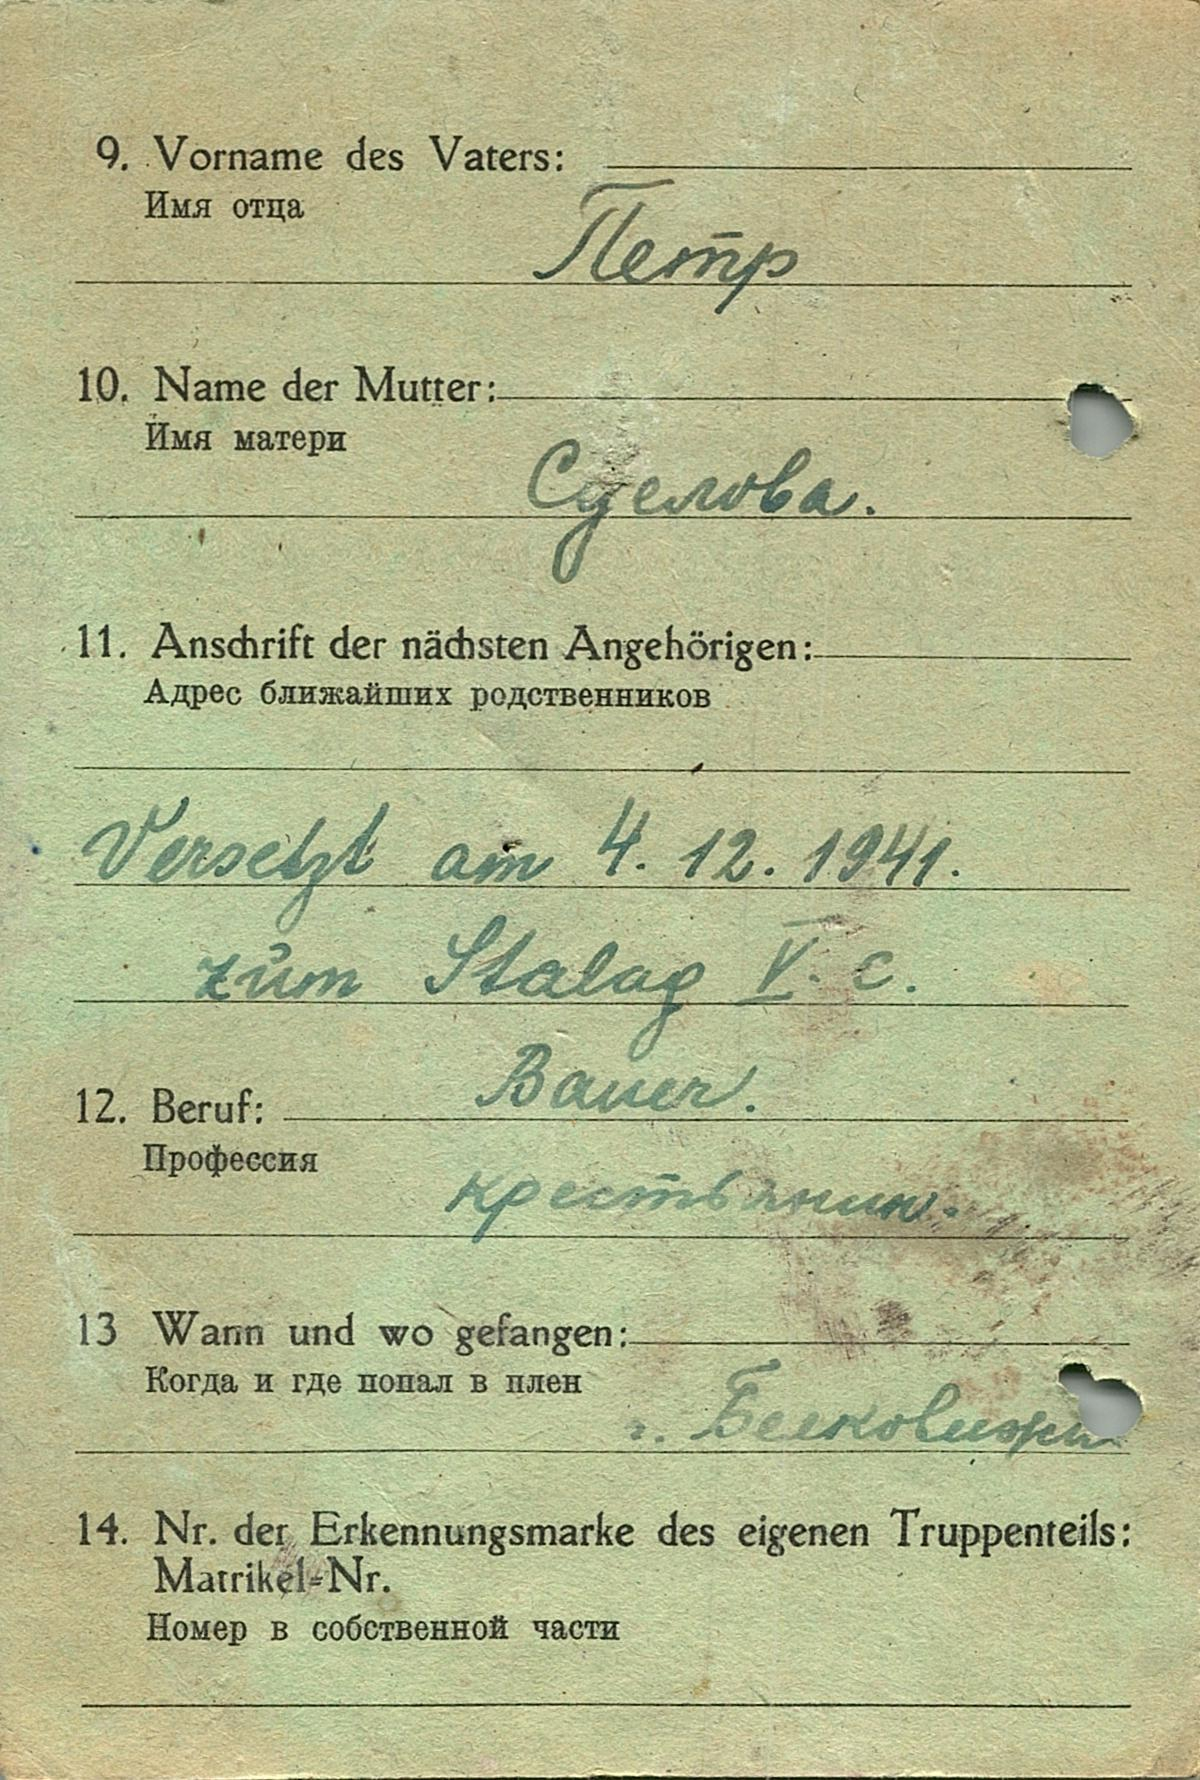 9. Vorname des Vaters:
Имя отца
Петр
10. Name der Mutter:
Имя матери
11. Anschrift der nächsten Angehörigen:
Адрес ближайших родственников
Versetzt am 4. 12. 1941.
zum Stalag V. C.
Bauer.
12. Beruf:
Профессия
крестьянин.
13 Wann und wo gefangen:
Когда и где попал в плен
14. Nr. der Erkennungsmarke des eigenen Truppenteils:
Matrikel-Nr.
Номер в собственной части